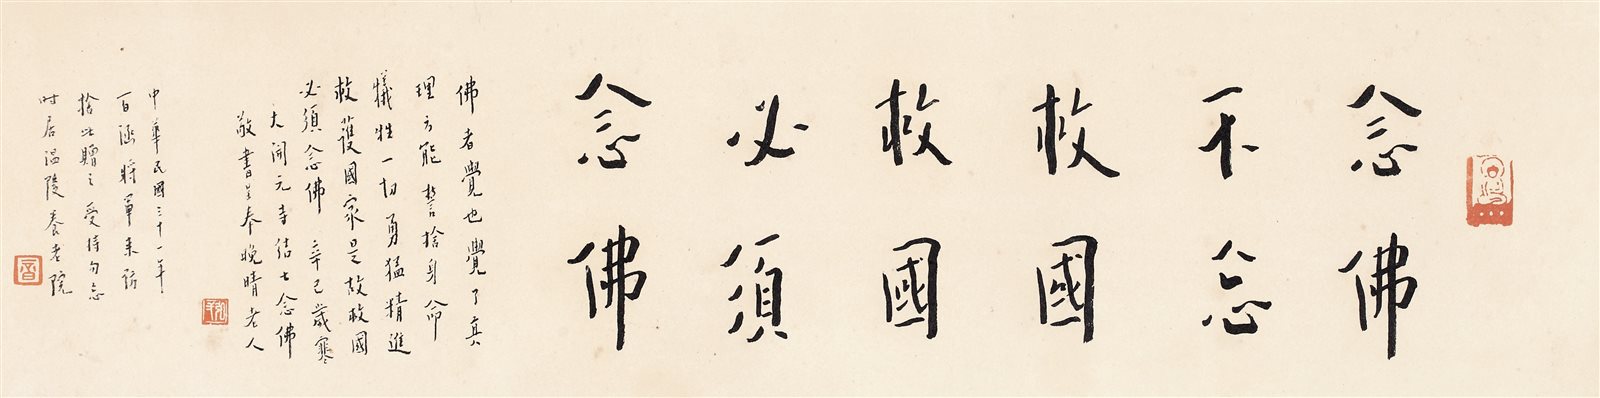 念佛
不忘
救國
救國
必須
念佛
佛者覺也覺了真
理乃能誓捨身命
犧牲一切勇猛精進
救護國家是故救國
必須念佛 辛巳歲寒
大開元寺結七念佛
敬書呈奉晚晴老人
中華民國三十一年
百涵將軍來訪
捨此贈之受持勿忘
時居溫陵養老院
音